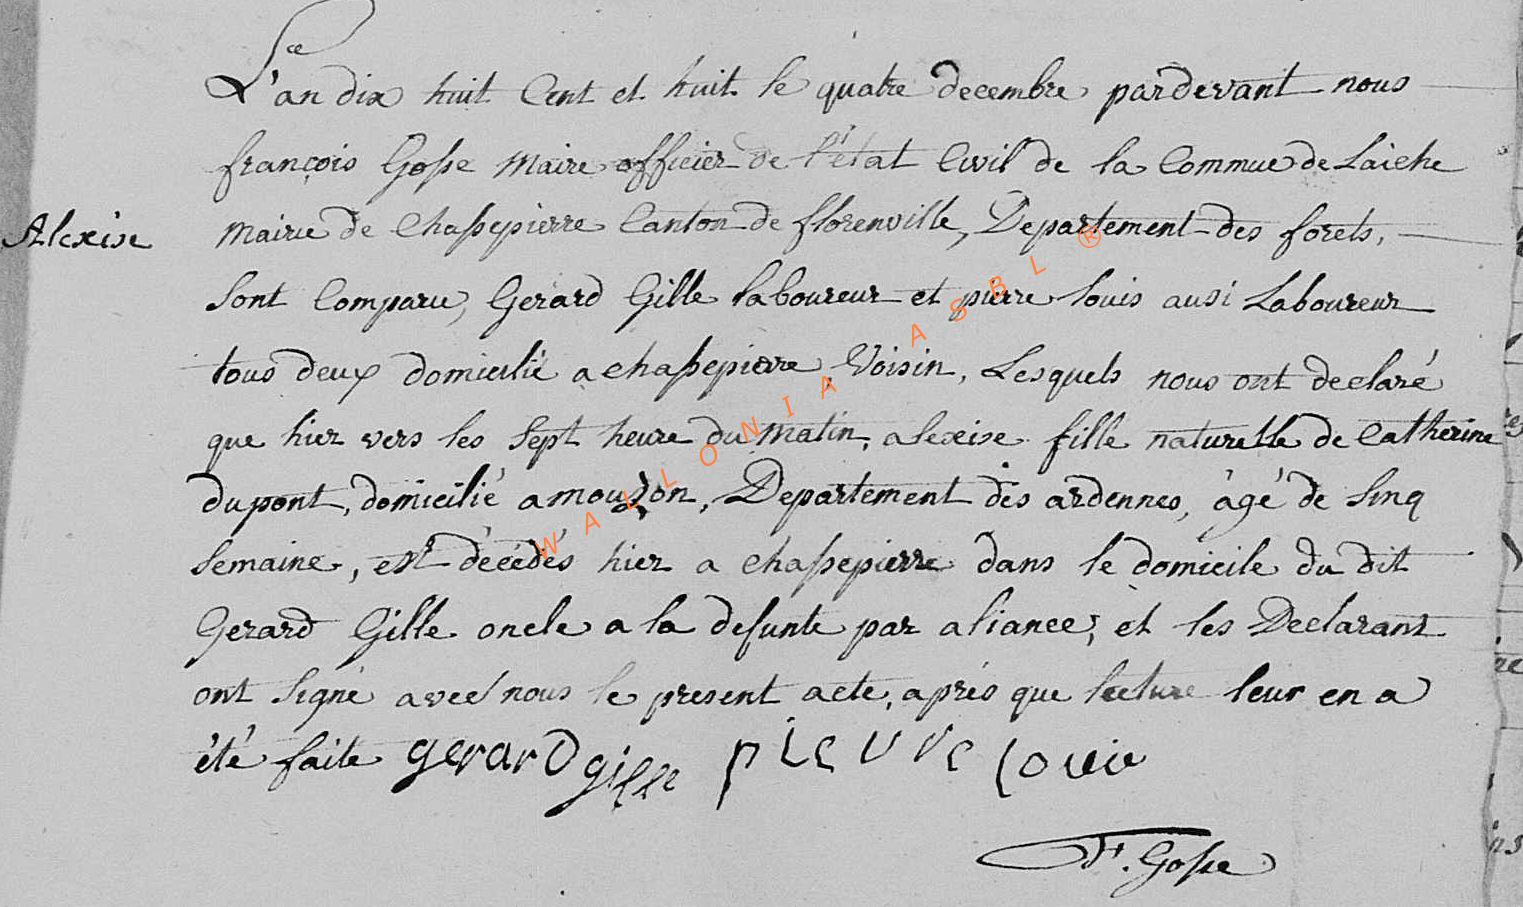 L'an dix huit Cent et huit le quatre decembre pardevant nous
françois Gosse Maire officier de l'état Civil de la Commue de Laiche
Alexise
Mairie de Chassepierre Canton de florenville, Departement des forets,
Sont Comparu, Gerard Gille laboureur et pierre louis ausi Laboureur
tous deux domicilié a chassepierre, Voisin, Lesquels nous ont declaré
que hier vers les Sept heure du Matin, alexise fille naturelle de Catherine
dupont, domicilié a mouzon, Departement des ardennes, âgé de Sinq
Semaine, est décédés hier a chassepierre dans le domicile du dit
Gerard Gille oncle a la defunte par aliance; et les Declarant
ont Signé avec nous le present acte, aprés que lecture leur en a
été faite gerard gille pierre louis
F. Gosse
WALLONIA ASBL ®